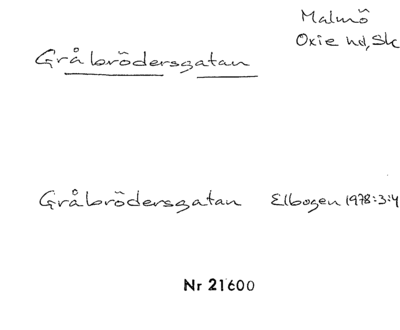 Malmö
Oxie hd, Sk
Gråbrödersgatan
Gråbrödersgatan Elbogen 1978:3:4
Nr 21600